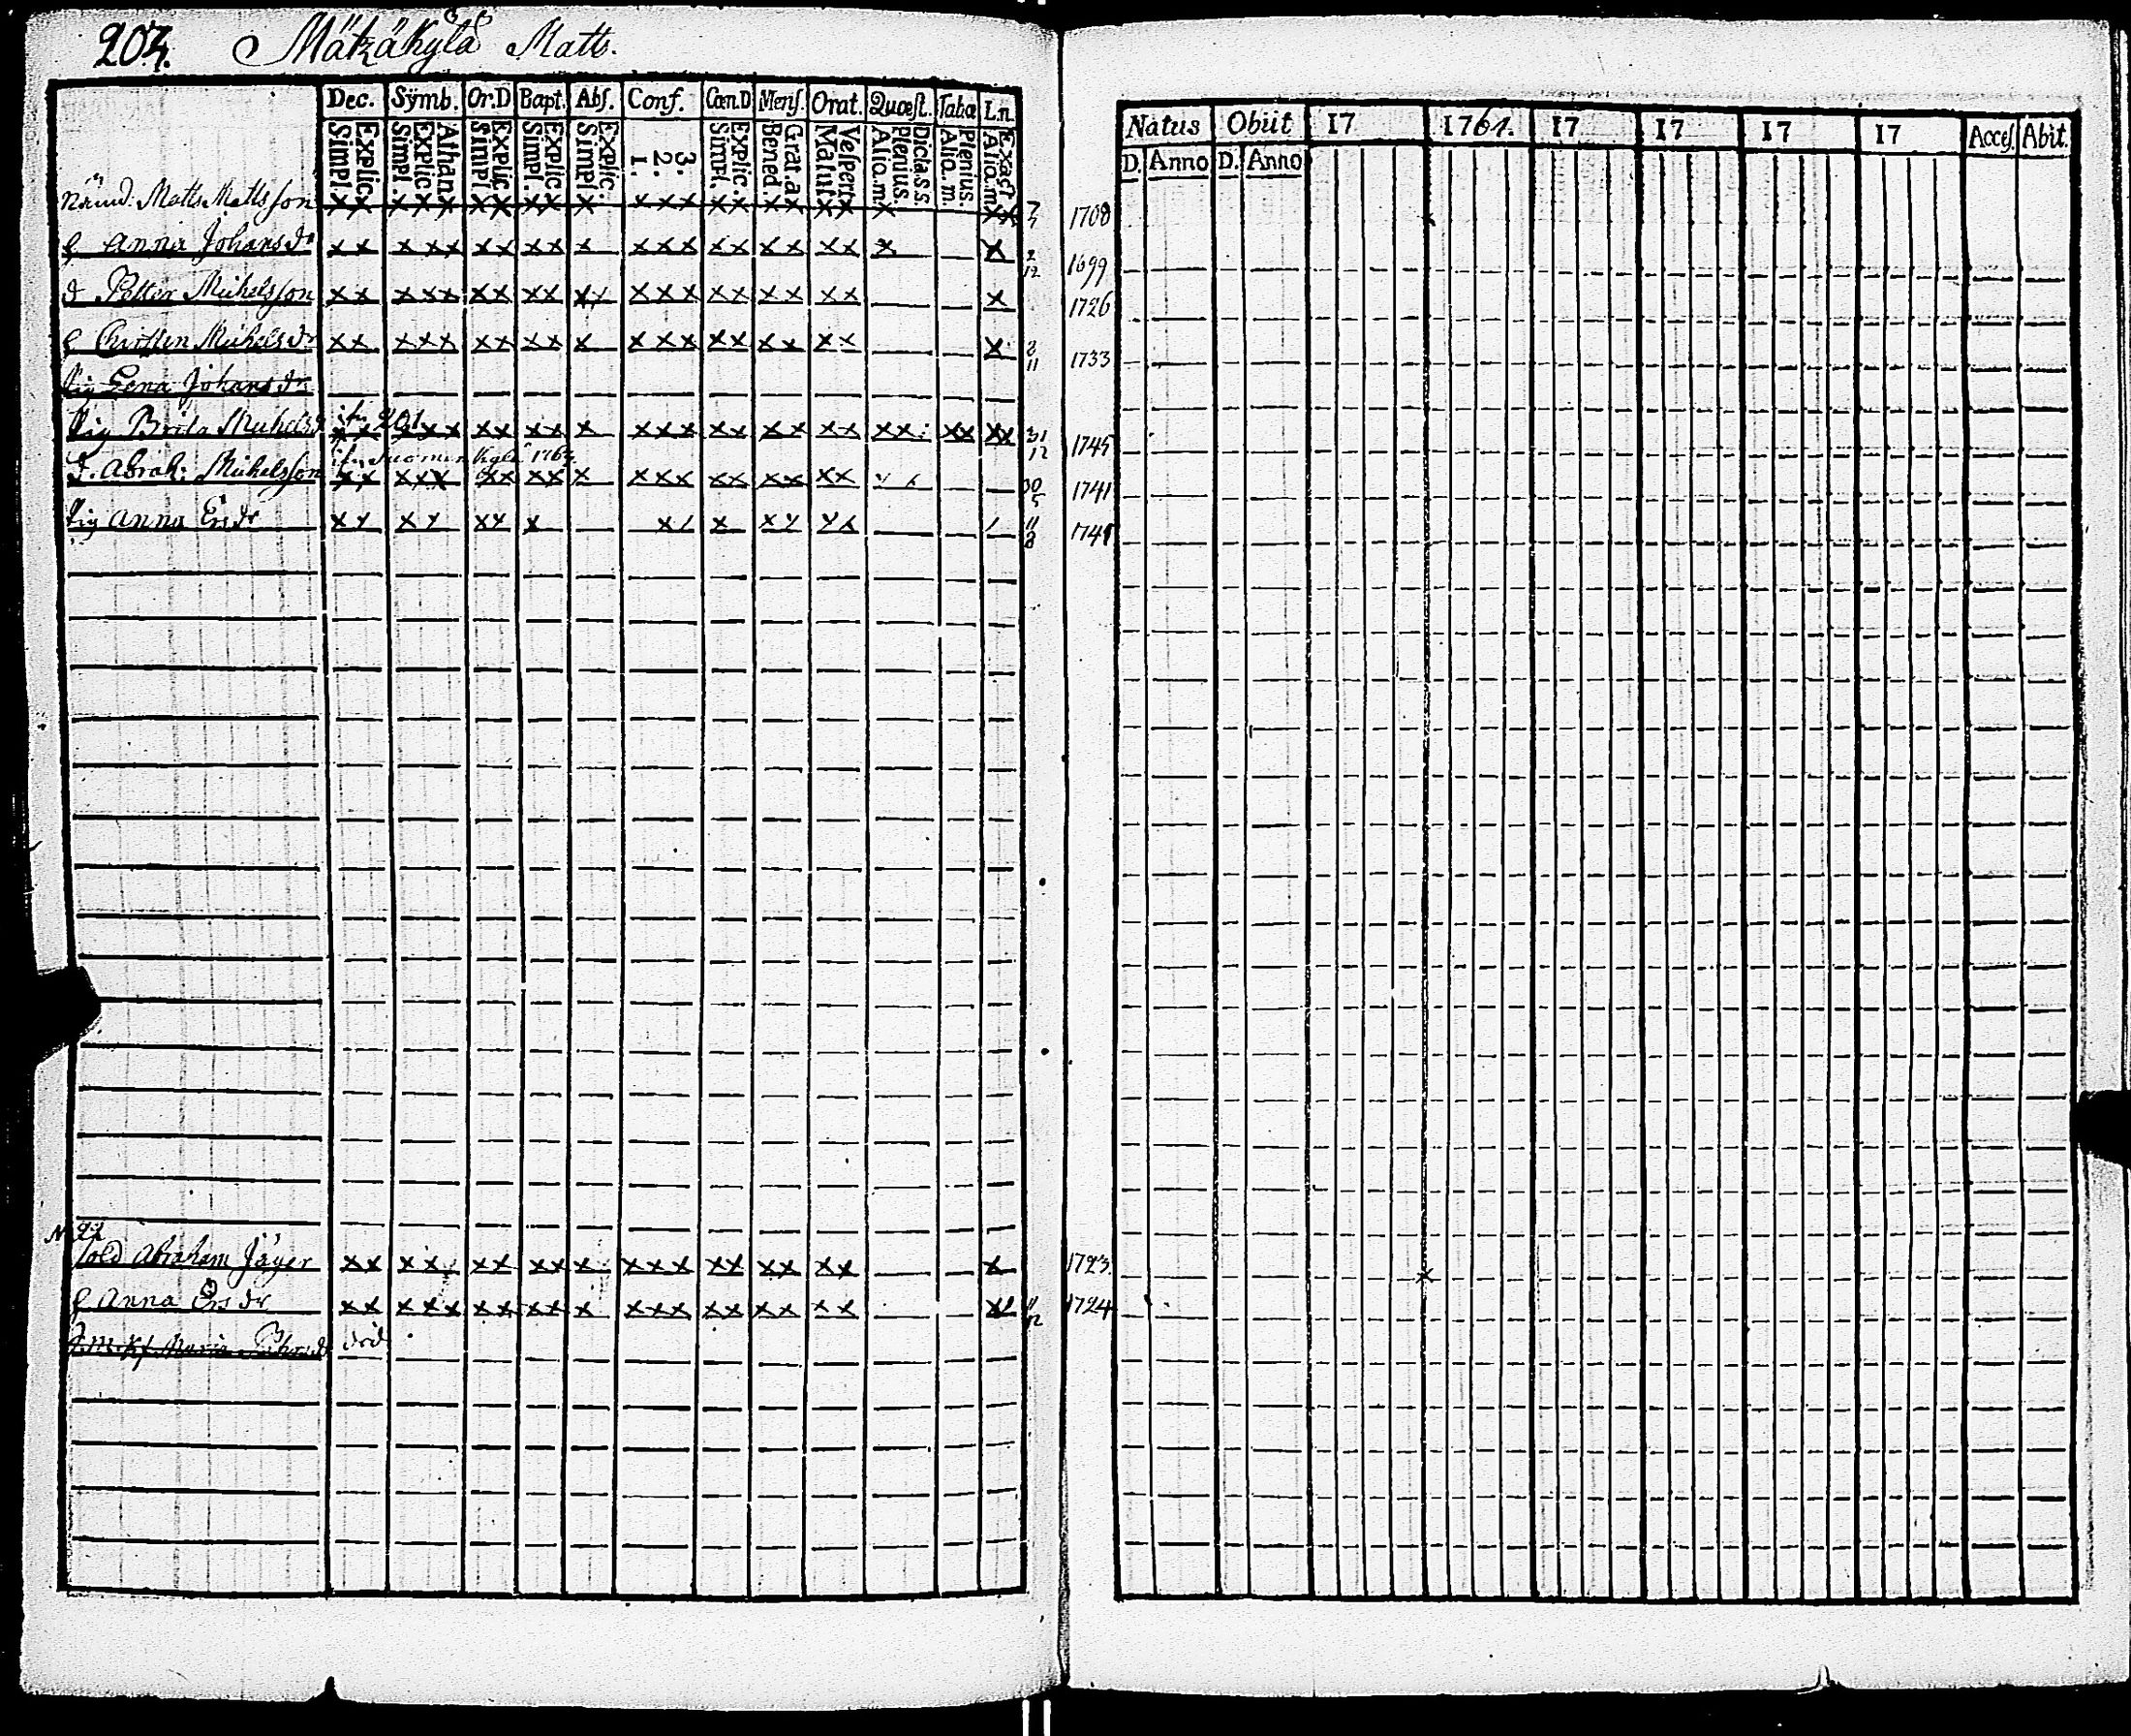 203. Mäkäkylä Matts.
Dec. Symb. Or.D Bapt. Abs. Conf. Cœn.D Mens. Orat. Quæst. Taba Ln.
Simpl. Explic. Simpl. Explic. Athan. Simpl. Explic. Simpl. Explic. Simpl. Explic. 1. 2. 3. Simpl. Explic. Bened. Grat.a Matut. Vespert. Alio.m Plenius. Dicta s s. Alio. m. Plenius. Alio.m. Exact
Natus Obiit 17 1761. 17 17 17 17 Acces. Abit.
D. Anno D. Anno
Nämd. Matts Mattsson x x x x x x x x x x x x x x x x x x x x x x 1708
h Anna Johansdr x x x x x x x x x x x x x x x x x x x x x 2/12 1699
d Petter Michelsson x x x x x x x x x x x x x x x x x x x x x 1726
h Christin Michelsdr x x x x x x x x x x x x x x x x x x x x 8/11 1733
Pig Lena Johansdr
Pig Brita Michelsd 201 x x x x x x x x x x x x x x x x x x x x x x x x x 31/12 1745
1767
d. Abrah: Michelsson x x x x x x x x x x x x x x x x x x x 30/5 1741
Pig Anna Ersdr x x x x x x x x x x x x x x 11/8 1741
Sold Abraham Jäger x x x x x x x x x x x x x x x x x x x 1723. x
h Anna Ersdr x x x x x x x x x x x x x x x x x x x x 11/12 1724
Maria död